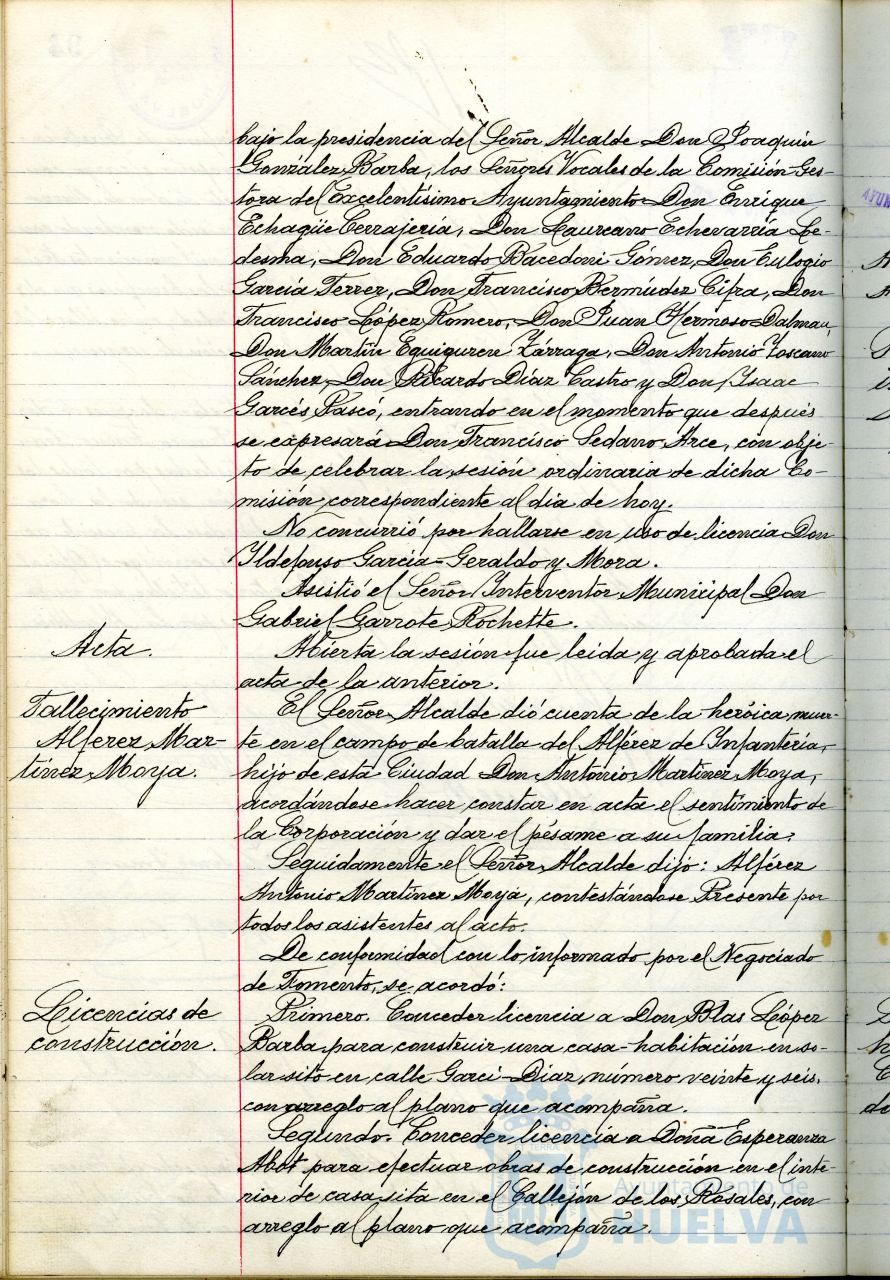 bajo la presidencia del Señor Alcalde Don Joaquín
González Barba, los Señores Vocales de la Comisión Ges-
tora del Excelentísimo Ayuntamiento Don Enrique
Echagüe Cerrajería, Don Laureano Echevarría Le-
desma, Don Eduardo Bacedoni Gómez, Don Eulogio
García Ferrer, Don Francisco Bermúdez Cifra, Don
Francisco López Romero, Don Juan Hermoso Dalmau,
Don Martín Eguiguren Zárraga, Don Antonio Toscano
Sánchez, Don Ricardo Díaz Castro y Don Isaac
Garcés Pascó, entrando en el momento que después
se expresará Don Francisco Sedano Arce, con obje-
to de celebrar la sesión ordinaria de dicha Co-
misión correspondiente al día de hoy.
No concurrió por hallarse en uso de licencia Don
Yldefonso García-Geraldo y Mora.
Asistió el Señor Interventor Municipal Don
Gabriel Garrote Rochette.
Acta.
Abierta la sesión fue leida y aprobada el
acta de la anterior.
Fallecimiento
Alferez Mar-
tínez Moya.
El Señor Alcalde dió cuenta de la heróica muer-
te en el campo de batalla del Alférez de Infantería,
hijo de esta Ciudad Don Antonio Martínez Moya,
acordándose hacer constar en acta el sentimiento de
la Corporación y dar el pésame a su familia.
Seguidamente el Señor Alcalde dijo: Alférez
Antonio Martínez Moya, contestándose Presente por
todos los asistentes al acto.
De conformidad con lo informado por el Negociado
de Fomento, se acordó:
Licencias de
construcción.
Primero. Conceder licencia a Don Blas López
Barba para construir una casa-habitación en so-
lar sito en calle Garci-Diaz, número veinte y seis,
con arreglo al plano que acompaña.
Segundo. Conceder licencia a Doña Esperanza
Abot para efectuar obras de construcción en el inte-
rior de casa sita en el Callejón de los Rosales, con
arreglo al plano que acompaña.
Ayuntamiento de
HUELVA